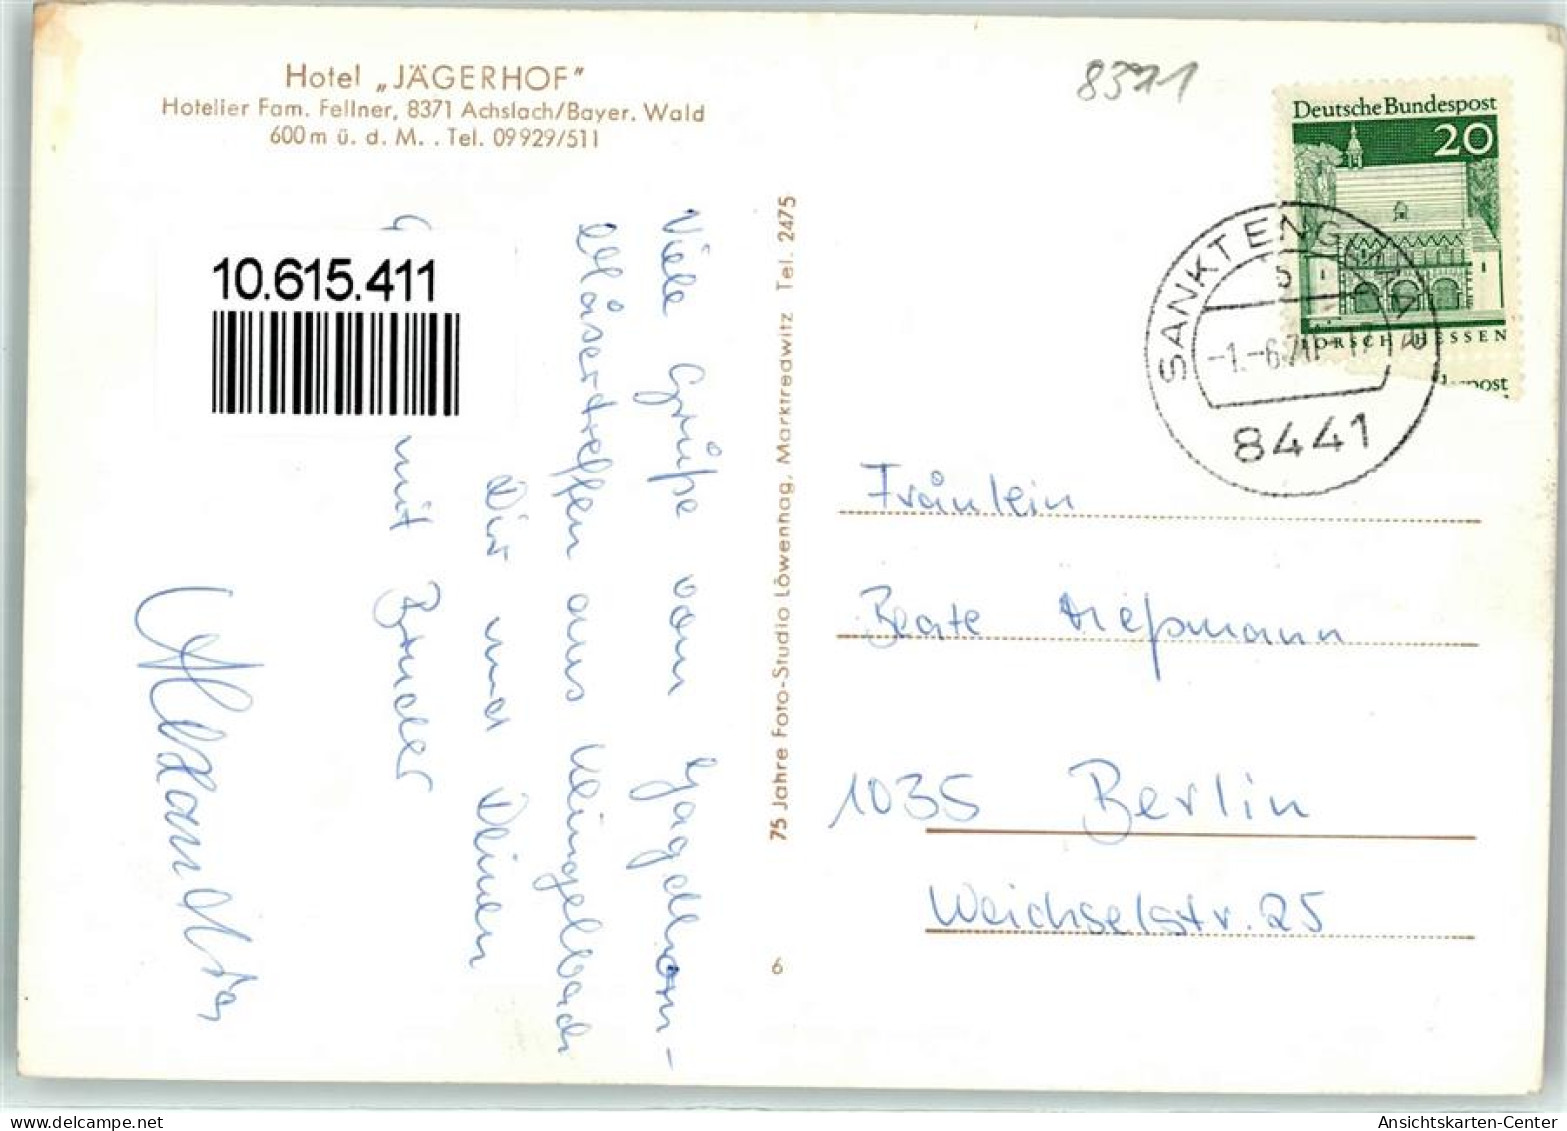 Hotel „JÄGERHOF"
Hotelier Fam. Fellner, 8371 Achslach/Bayer. Wald
600 m ü. d. M. . Tel. 09929/511
8371
Deutsche Bundespost
20
LORSCH HESSEN
post
SANKT ENGLMAR
b
-1.-6.71-17
8441
10.615.411
Viele Grüße vom Jagdhorn-
bläsertreffen aus Klingelbach
Dir und Deinen
mit Bruder
Alexander
75 Jahre Foto-Studio Löwenhag, Marktredwitz Tel. 2475
6
Fräulein
Beate
1035 Berlin
Weichselstr. 25
Ansichtskarten-Center